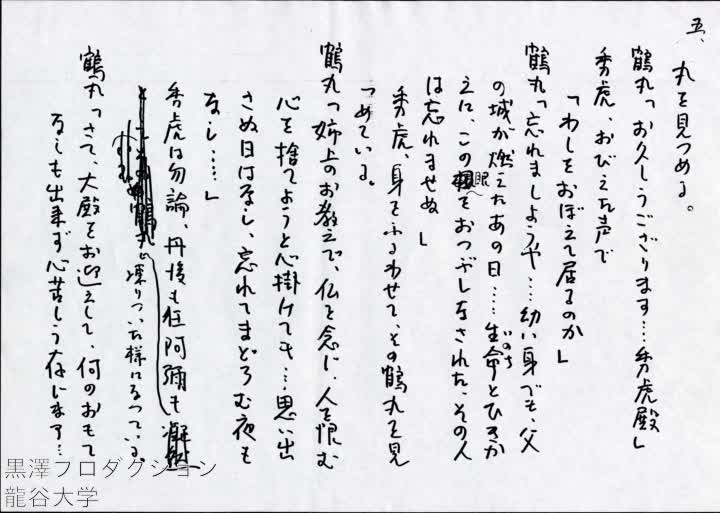 五、
丸を見つめる。
鶴丸「お久しうござります…秀虎殿」
秀虎、おびえた声で
「わしをおぼえて居るのか」
鶴丸「忘れましようや…幼い身でも、父
の城が燃えたあの日……生命とひきか
えに、この眼をおつぶしなされた、その人
は忘れませぬ」
秀虎、身をふるわせて、その鶴丸を見
つめている。
鶴丸「姉上のお教えで、仏を念じ、人を恨む
心を捨てようと心掛けても…思い出
さぬ日はなし、忘れてまどろむ夜も
なし……」
秀虎は勿論、丹後も狂阿彌も
凍りついた様になつている。
鶴丸「さて、大殿をお迎えして、何のおもて
なしも出来ず心苦しう存じますが…
黒澤プロダクション
龍谷大学